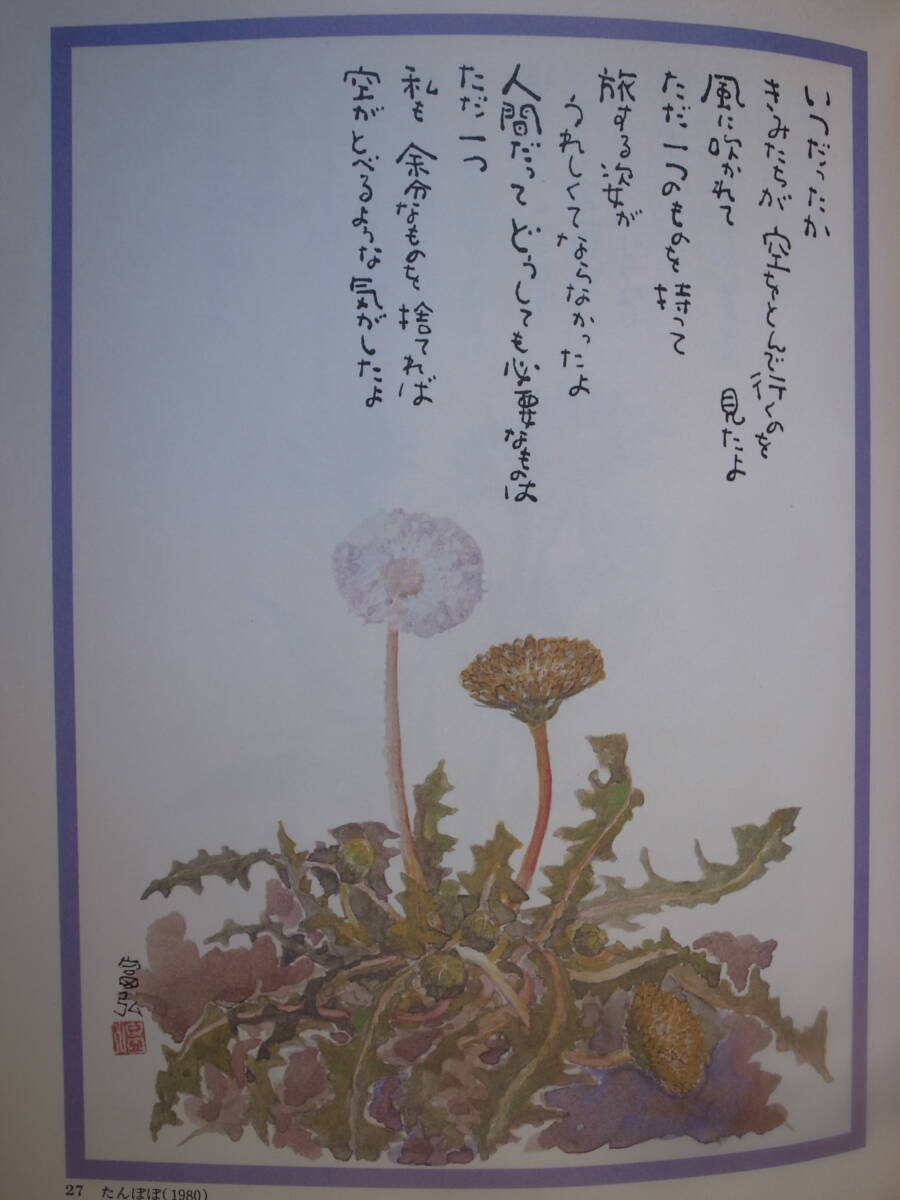 いつだったか
きみたちが 空をとんで行くのを
見たよ
風に吹かれて
ただ一つのものを持って
旅する姿が
うれしくてならなかったよ
人間だって どうしても必要なものは
ただ一つ
私も 余分なものを 捨てれば
空がとべるような気がしたよ
富弘
27 たんぽぽ(1980)